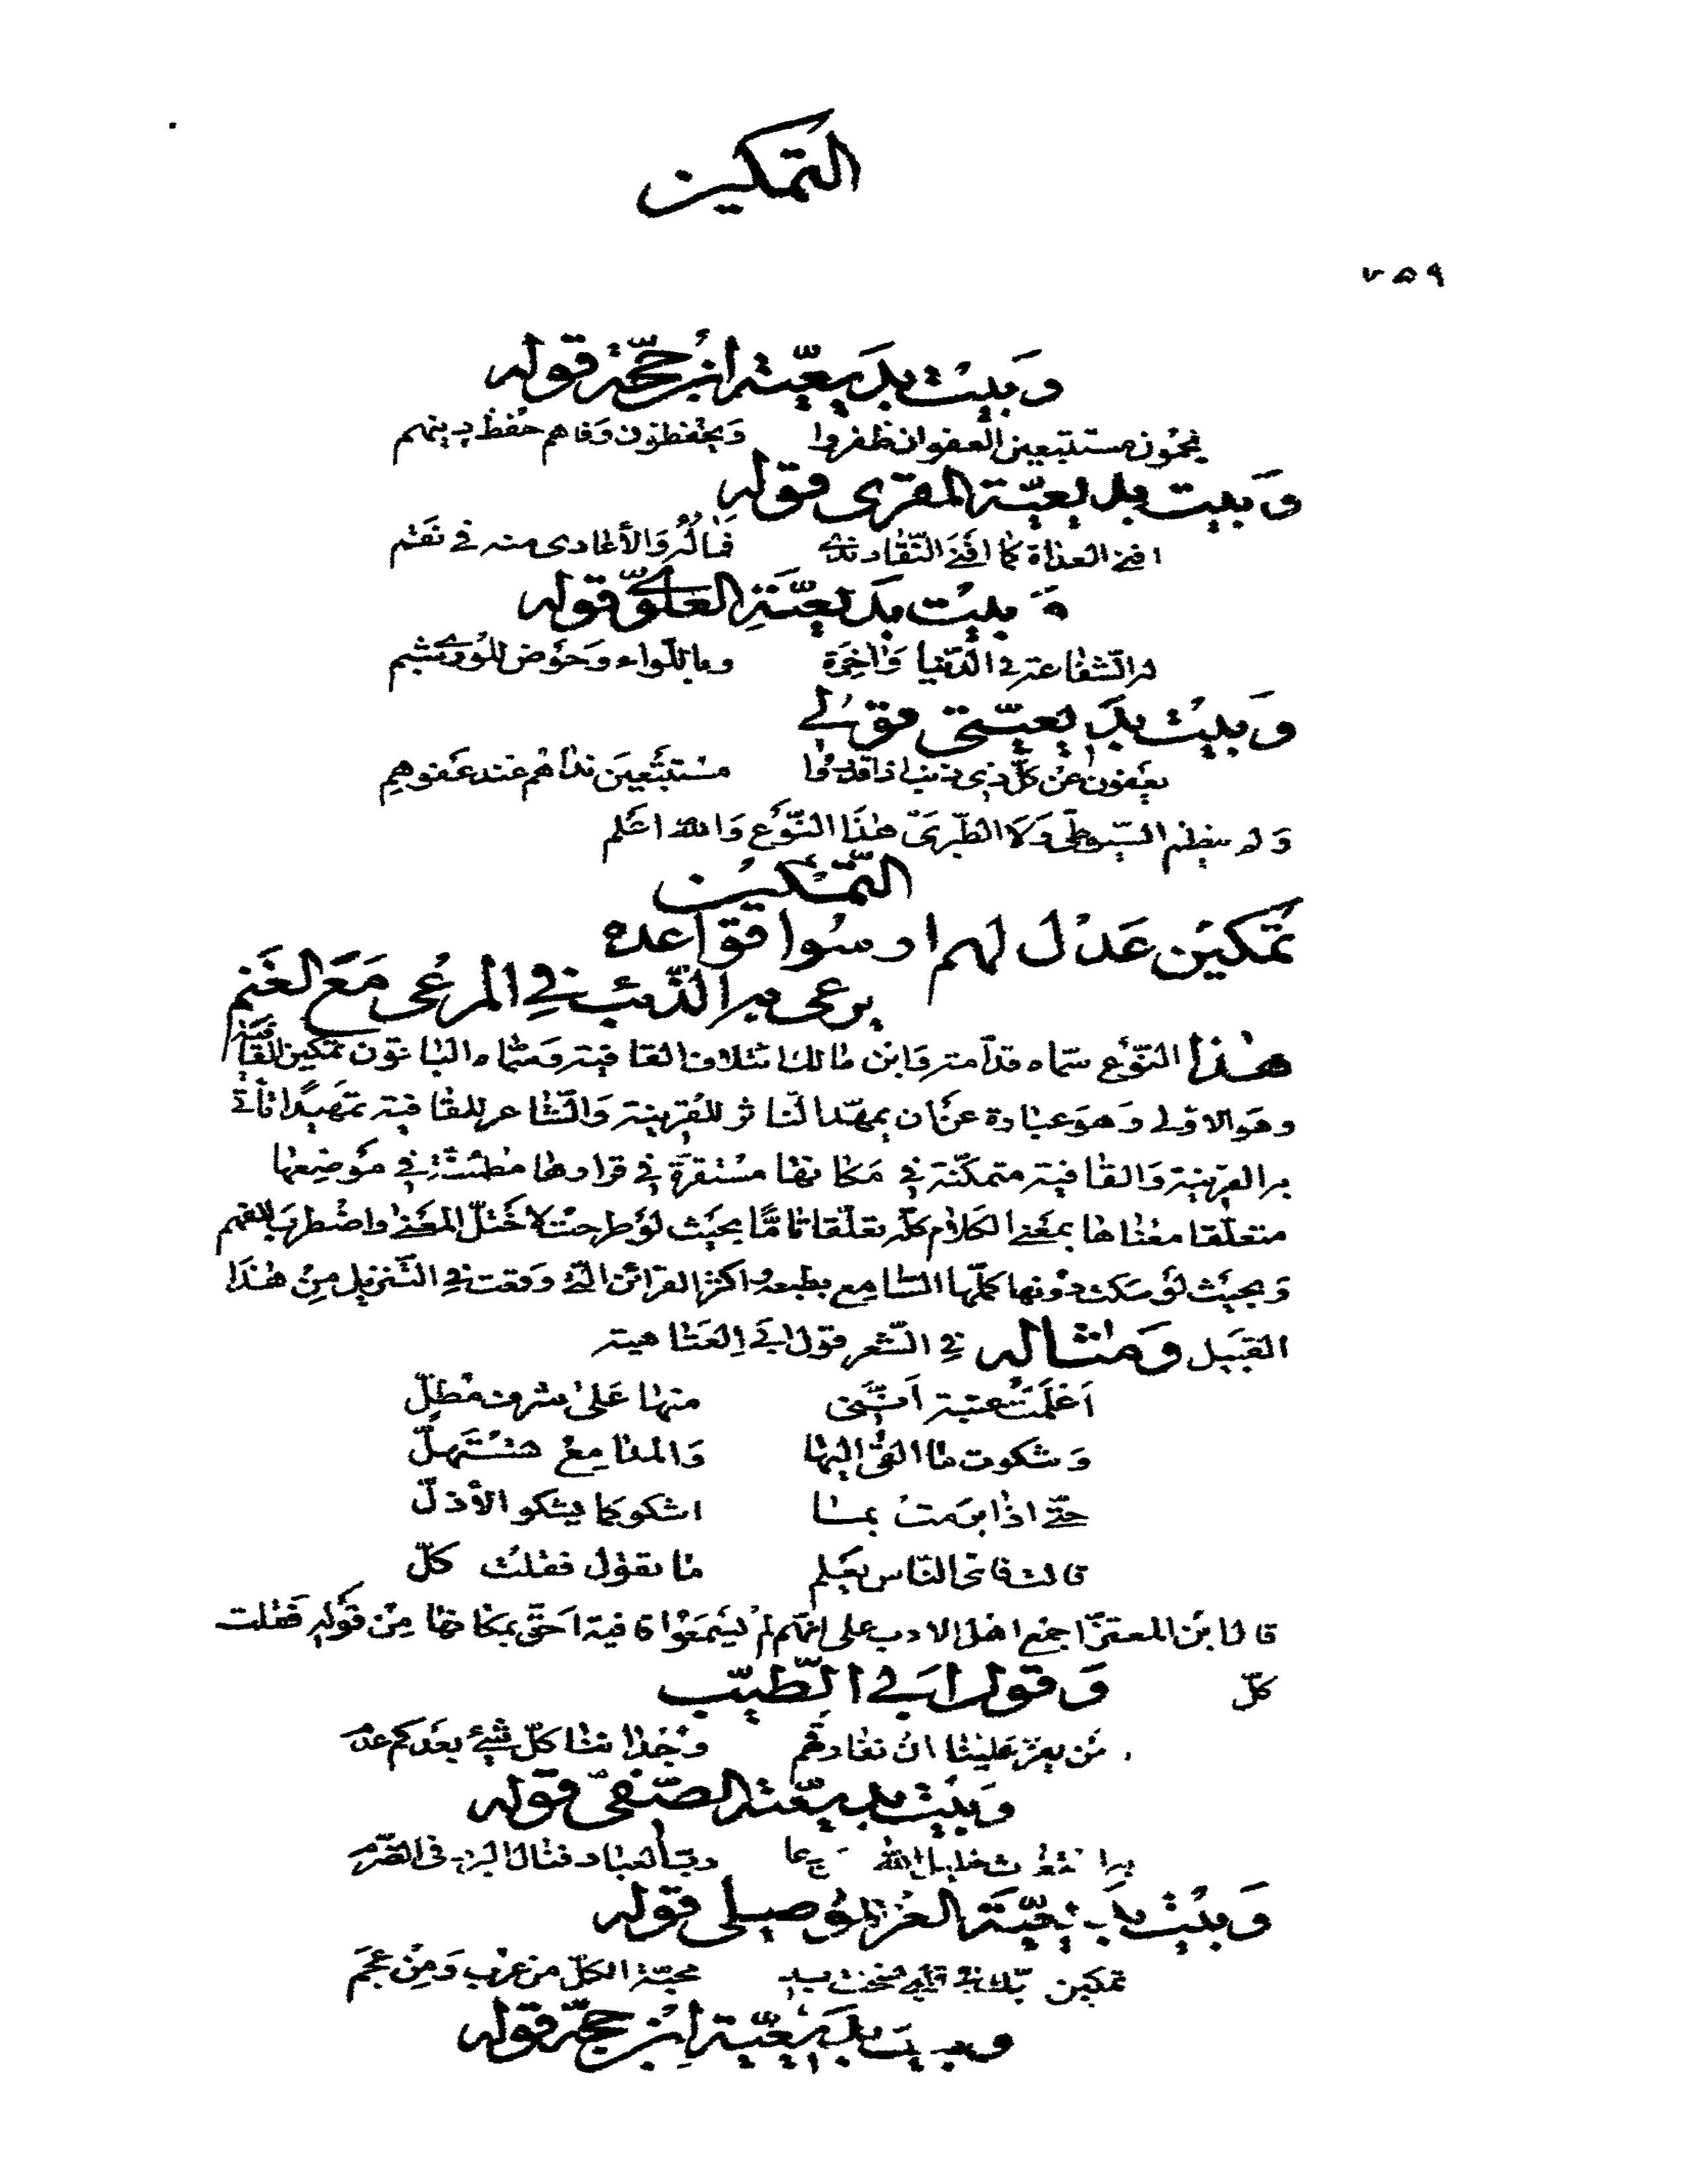 التمكين
٧٥٩
وبيت بديعية ابن حجة قوله
يحمون مستتبعين العفو ان ظفروا ويحفظون وفاهم حفظ دينهم
وبيت بديعية المقرى قوله
افنى العداة كما افنى النقاد ندى فمالُه والأعادى منه فى نقم
وبيت بديعية العلوى قوله
له الشفاعة فى الدنيا واخرة وباللواء وحوض للورى شبم
وبيت بديعيتى قولى
يعفون عن كل ذى ذنب اذا قدروا مستتبعين نداهم عند عفوهم
ولم ينظم السيوطى ولا الطبرى هذا النوع والله اعلم
التمكين
تمكين عدل لهم ارسوا قواعده
يرعى به الذئب فى المرعى مع الغنم
هذا النوع سماه قدامة وابن مالك ائتلاف القافية وسماه الباقون تمكين القافية
وهو الاولى وهو عبارة عن ان يمهد الناثر للقرينة والشاعر للقافية تمهيدا تأتى
به القرينة والقافية متمكنة فى مكانها مستقرة فى قرارها مطمئنة فى موضعها
متعلقا معناها بمعنى الكلام كله تعلقا تامًّا بحيث لو طرحت لاختل المعنى واضطرب الفهم
وبحيث لو سكت دونها كملها السامع بطبعه واكثر القرائن التى وقعت فى التنزيل من هذا
القبيل ومثاله فى الشعر قول ابى العتاهية
اعلمت عتبة اننى منها على شرف مطل
وشكوت ما القى اليها والمدامع تستهل
حتى اذا برمت بما اشكو كما يشكو الأذل
قالت فاى الناس يعلم ما تقول فقلت كل
قال ابن المعتز اجمع اهل الادب على انهم لم يسمعوا قافية احق بمكانها من قوله فقلت
كل وقول ابى الطيب
يا من يعز علينا ان نفارقهم وجداننا كل شيئ بعدكم عدم
وبيت بديعية الصفى قوله
به استغاث خليل الله حين دعا رب العباد فنال البرد فى الضرم
وبيت بديعية العز الموصلى قوله
تمكين محبة الكل من عرب ومن عجم
وبيت بديعية ابن حجة قوله